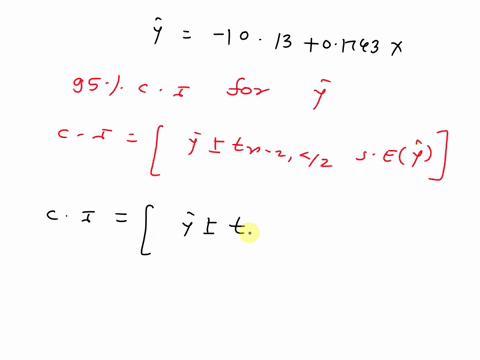 Ŷ = -10.13 + 0.1763 X
95% C.I for Ŷ
C-I = [ Ŷ ± tn-2, α/2 S.E(Ŷ) ]
C.I = [ Ŷ ± t.